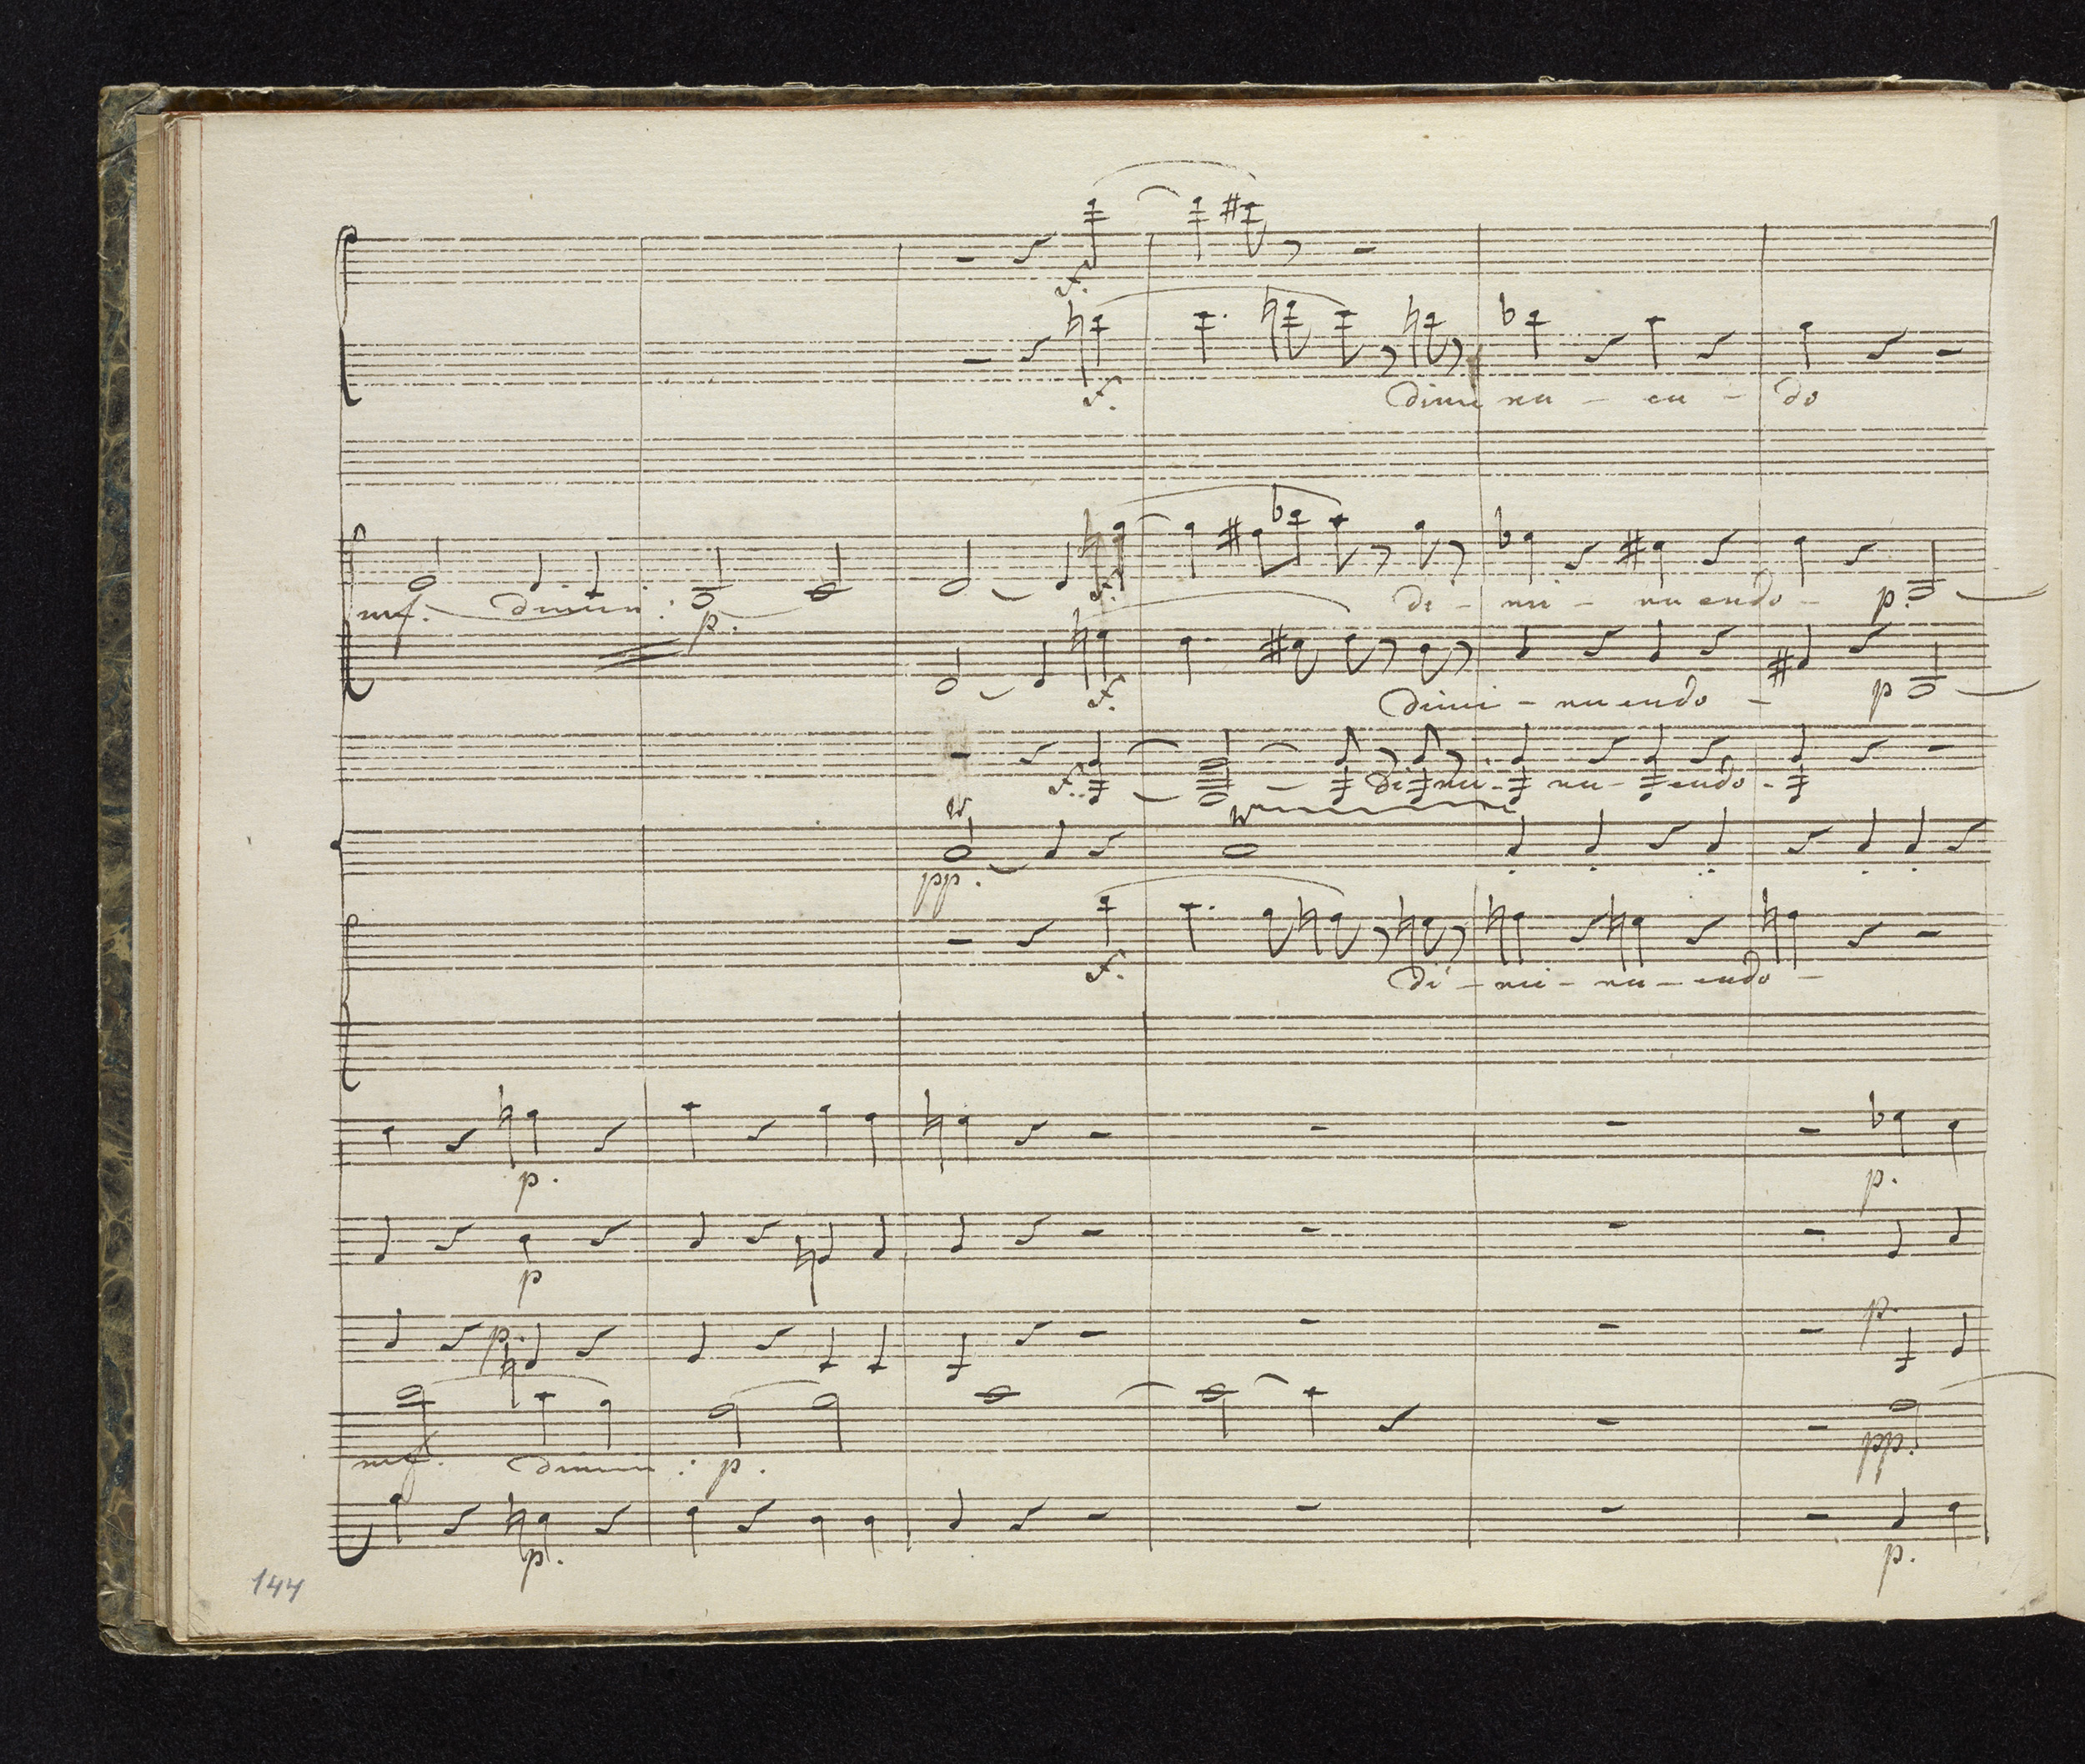 f.
f.
dimi nu - en - do
mf. dimin: p. f. di - mi - nuendo - p.
f. dimi - nuendo - p
f. di - mi - nu - endo -
tr tr
pp.
f. di - mi - nu - endo -
p. p.
p
p. p.
mf. dimin: p. pp.
p. p.
144